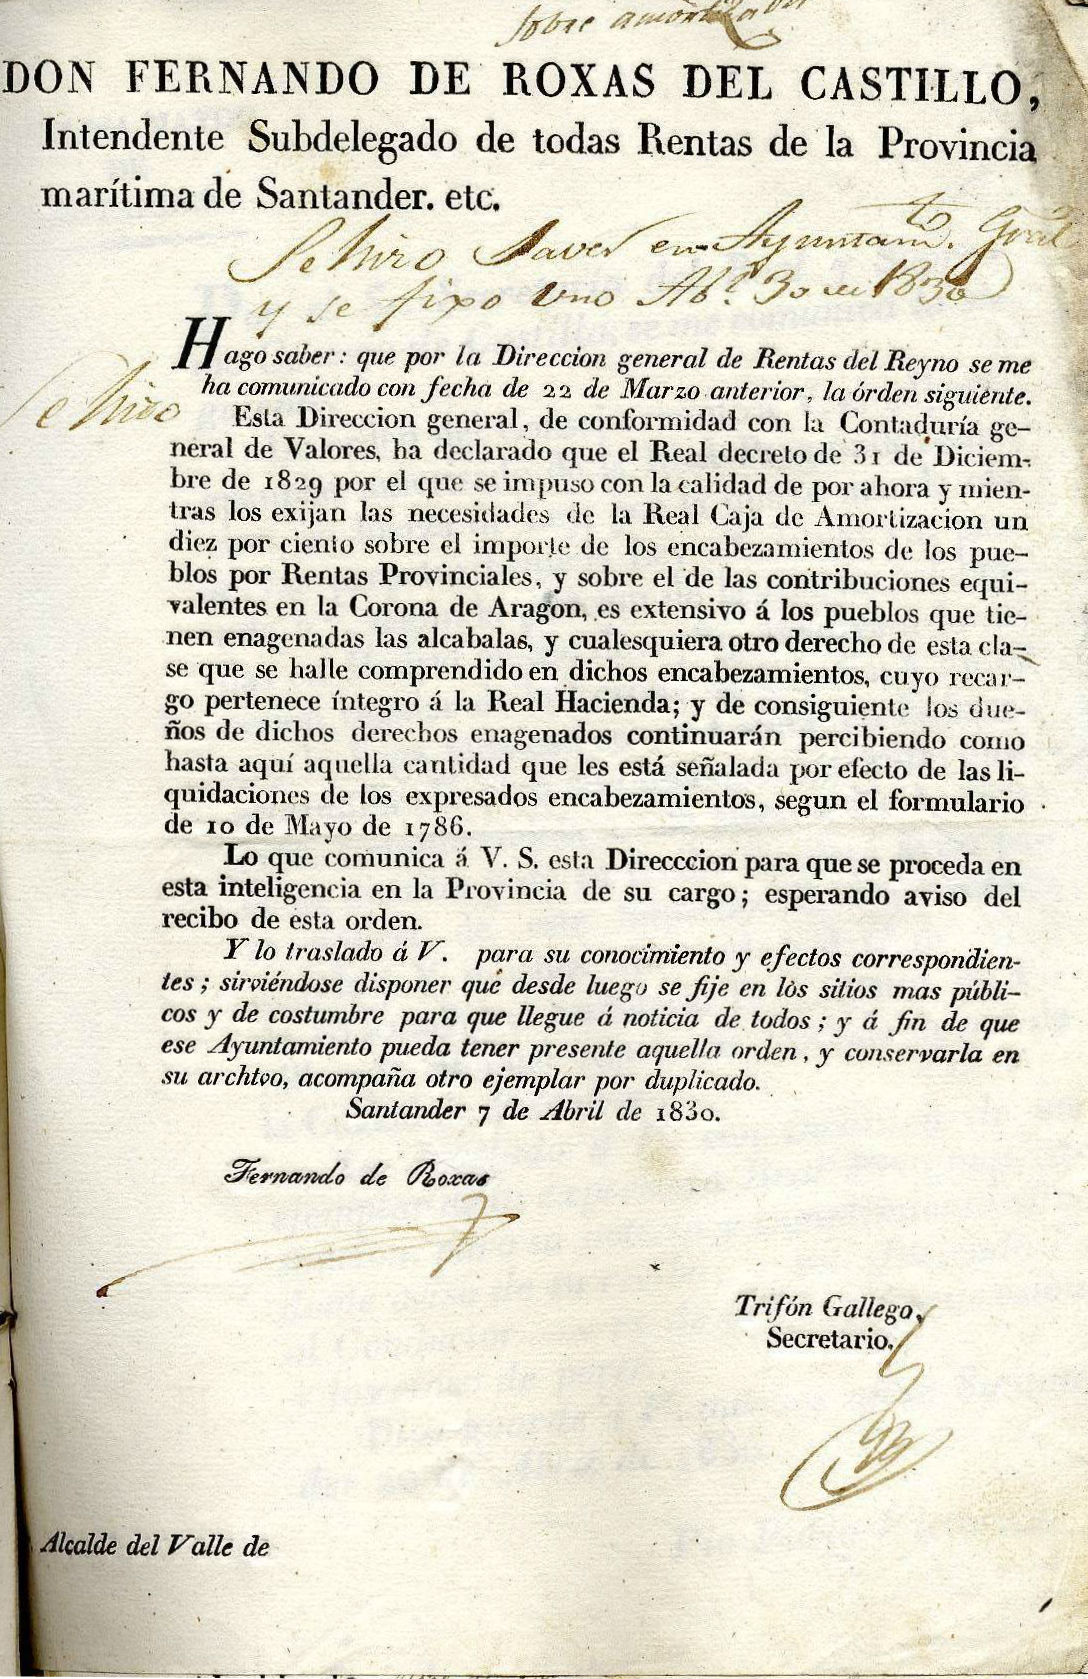 Sobre amortizaon
DON FERNANDO DE ROXAS DEL CASTILLO,
Intendente Subdelegado de todas Rentas de la Provincia
marítima de Santander. etc.
Se hizo Saver en Ayuntamto. Gral
y se fixo uno Abl. 30 de 1830
Se hizo
Hago saber: que por la Direccion general de Rentas del Reyno se me
ha comunicado con fecha de 22 de Marzo anterior, la órden siguiente.
Esta Direccion general, de conformidad con la Contaduría ge-
neral de Valores, ha declarado que el Real decreto de 31 de Diciem-
bre de 1829 por el que se impuso con la calidad de por ahora y mien-
tras los exijan las necesidades de la Real Caja de Amortizacion un
diez por ciento sobre el importe de los encabezamientos de los pue-
blos por Rentas Provinciales, y sobre el de las contribuciones equi-
valentes en la Corona de Aragon, es extensivo á los pueblos que tie-
nen enagenadas las alcabalas, y cualesquiera otro derecho de esta cla-
se que se halle comprendido en dichos encabezamientos, cuyo recar-
go pertenece íntegro á la Real Hacienda; y de consiguiente los due-
ños de dichos derechos enagenados continuarán percibiendo como
hasta aquí aquella cantidad que les está señalada por efecto de las li-
quidaciones de los expresados encabezamientos, segun el formulario
de 10 de Mayo de 1786.
Lo que comunica á V. S. esta Direcccion para que se proceda en
esta inteligencia en la Provincia de su cargo; esperando aviso del
recibo de esta orden.
Y lo traslado á V. para su conocimiento y efectos correspondien-
tes; sirviéndose disponer que desde luego se fije en los sitios mas públi-
cos y de costumbre para que llegue á noticia de todos; y á fin de que
ese Ayuntamiento pueda tener presente aquella orden, y conservarla en
su archivo, acompaña otro ejemplar por duplicado.
Santander 7 de Abril de 1830.
Fernando de Roxas
Trifón Gallego,
Secretario.
Alcalde del Valle de